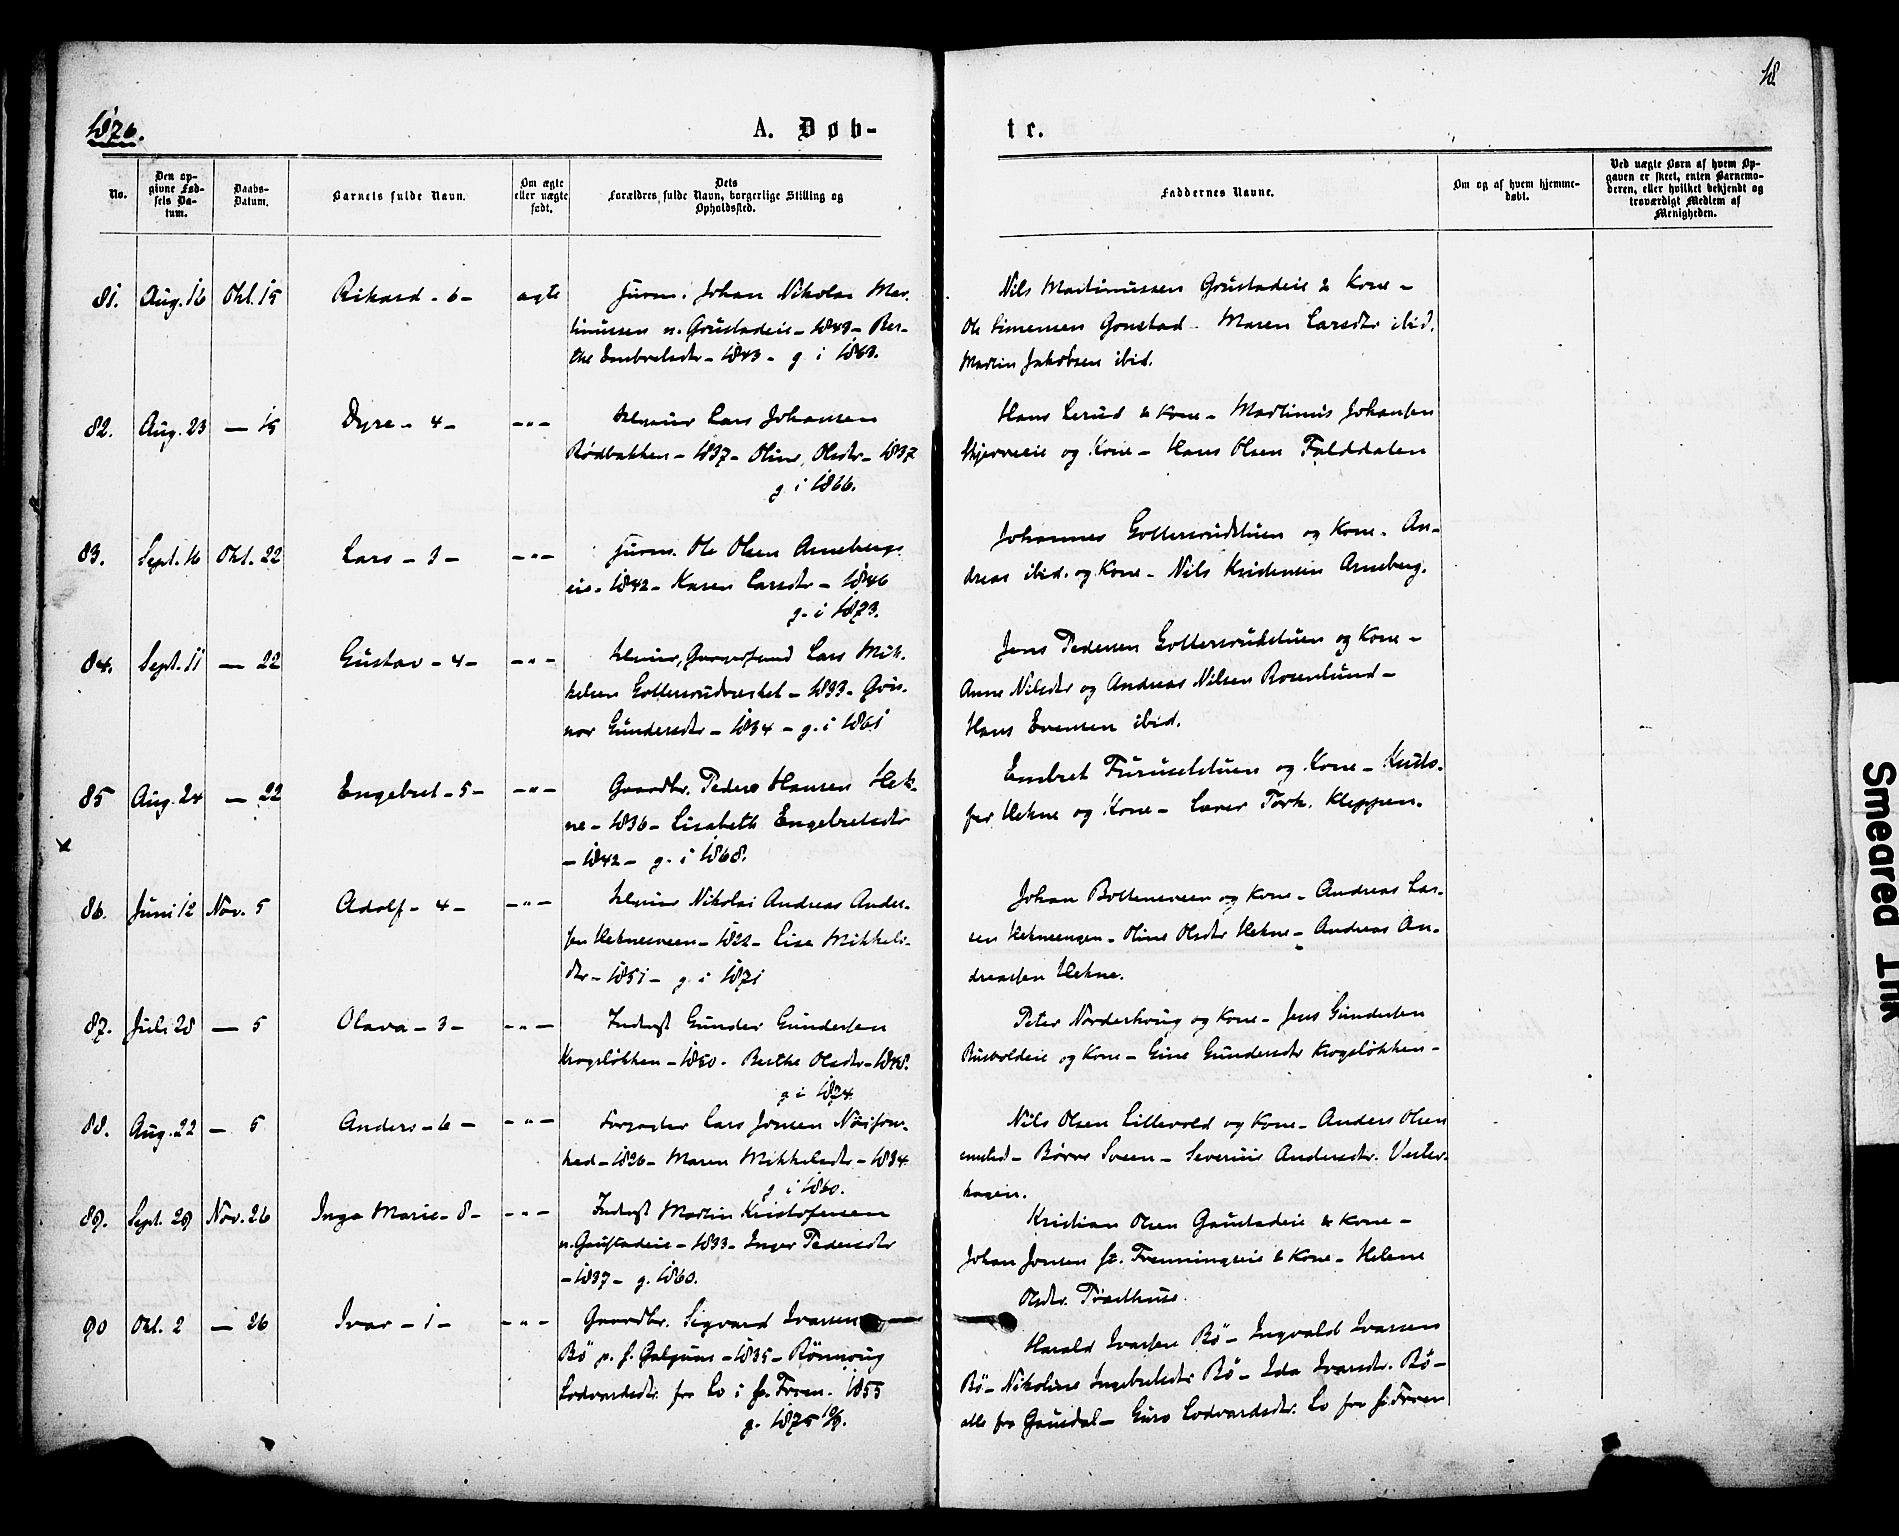 18
1876.
A. Døb-
te.
No.
Den op-
givne Fød-
sels Da-
tum.
Daabs-
Datum.
Barnets fulde Navn.
Om ægte
eller uægte
født.
Dets
Forældres fulde Navn, borgerlige Stilling og
Opholdssted.
Faddernes Navne.
Om og af hvem hjemme-
døbt.
Ved uægte Børn af hvem Op-
gaven er skeet, enten Barnemo-
deren, eller hvilket bekjendt og
troværdigt Medlem af
Menigheden.
81. Aug. 16 Okt. 15 Rikard - 6 - ægte
Johan Nikolai Mar-
tinussen n. Grustadeie - 1843 - Ber-
the Embretsdtr - 1843 - g. i 1863.
Nils Martinussen Grustadeie & Kone -
Ole Simensen Gonstad - Maren Larsdtr ibid.
Martin Jakobsen ibid.
82. Aug. 23 - 15 Dyre - 4 - -"-
Lars Johansen
Rødbakken - 1837 - Oline Olsdtr - 1837
g. i 1866.
Hans Lerud & Kone - Martinus Johansen
Skjerveeie og Kone - Hans Olsen Falddalen
83. Sept. 16 Okt. 22 Lars - 3 - -"-
Ole Olsen Arneberg-
eie - 1842 - Karen Larsdtr - 1846
g. i 1873.
Johannes Gollersrudstuen og Kone - An-
dreas ibid. og Kone - Nils Kristensen Arneberg.
84. Sept. 11 - 22 Gustav - 4 - -"-
Lars Mik-
kelsen - 1833 - Gui-
nor Gundersdtr - 1834 - g. i 1861
Jens Pedersen Gollersrudstuen og Kone -
Anne Nilsdtr og Andreas Nilsen Rosenlund -
Hans Evensen ibid.
85 Aug. 24 - 22 Engebret - 5 - -"-
Gaardbr. Peder Hansen Hek-
ne - 1836 - Lisabeth Engebretsdtr
- 1842 - g. i 1868.
Embret Furusetstuen og Kone - Kristo-
fer Hekne og Kone - Lærer Tork. Kleppen.
86. Juni 12 Nov. 5 Adolf - 4 - -"-
Nikolai Andreas Ander-
sen Heknesveen - 1822 - Lise Mikkels-
dtr - 1851 - g. i 1871
Johan Boltensveen og Kone - Andreas Lar-
sen Hekneengen - Oline Olsdtr Hekne - Andreas An-
dreassen Hekne.
87. Juli 28 - 5 Olava - 3 - -"-
Inderst Gunder Gundersen
Krogsløkken - 1850 - Berthe Olsdtr - 1848.
g. i 1874
Peter Norderhaug og Kone - Jens Gundersen
og Kone - Gine Gundersdtr Krogsløkken -
88. Aug. 22 - 5 Anders - 6 - -"-
Forpagter Lars Jonsen
- 1826 - Maren Mikkelsdtr - 1834
g. i 1860.
Nils Olsen Lillevold og Kone - Anders Olsen
- Børre Sveen - Severine Andersdtr. Vester-
hagen.
89. Sept. 29 Nov. 26 Inga Marie - 8 - -"-
Inderst Martin Kristofersen
n. Gaustadeie - 1833 - Inger Pedersdtr
- 1837 - g. 1860.
Kristian Olsen Gaustadeie & Kone -
Johan Jonsen & Kone - Helene
Olsdtr.
90 Okt. 2 - 26 Ivar - 1 - -"-
Gaardbr. Sigvard Ivarsen
Bø - 1835 - Rønnoug
Lodvardsdtr fra Lo i Fron - 1855
g. 1875
Harald Ivarsen Bø - Ingvald Ivarsen
Bø - Nikoline Ingebretsdtr Bø - Ida Ivarsdtr. Bø -
alle fra Gausdal - Guro Lodvardsdtr. Lo fra Fron
Smeared Ink